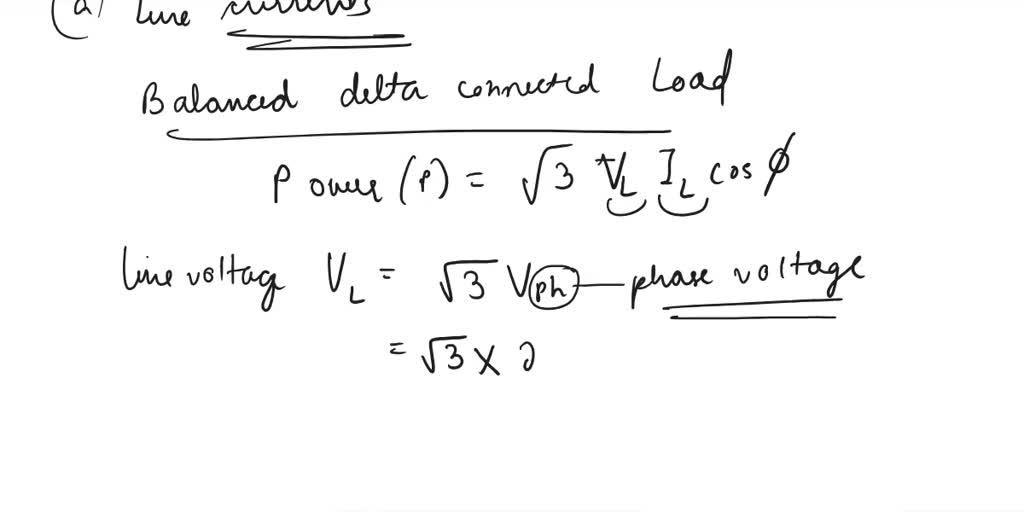 (a) Line currents
Balanced delta connected Load
Power (P) = √3 V_L I_L cos ϕ
Line voltage V_L = √3 V_ph — phase voltage
= √3 × 2